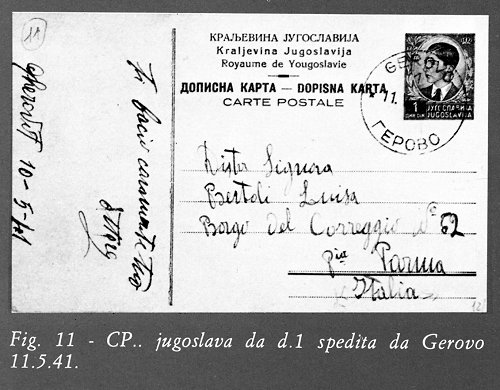 11
КРАЉЕВИНА ЈУГОСЛАВИЈА
Kraljevina Jugoslavija
Royaume de Yougoslavie
ДОПИСНА КАРТА — DOPISNA KARTA
CARTE POSTALE
GEROVO
11.
ГЕРОВО
1
ЈУГОСЛАВИЈА
JUGOSLAVIJA
10-5-41
Ti bacio caramente
Luigi
Signora
Bertoli Luisa
Borgo del Correggio N° 62
Parma
Italia
12
Fig. 11 - CP.. jugoslava da d.1 spedita da Gerovo
11.5.41.